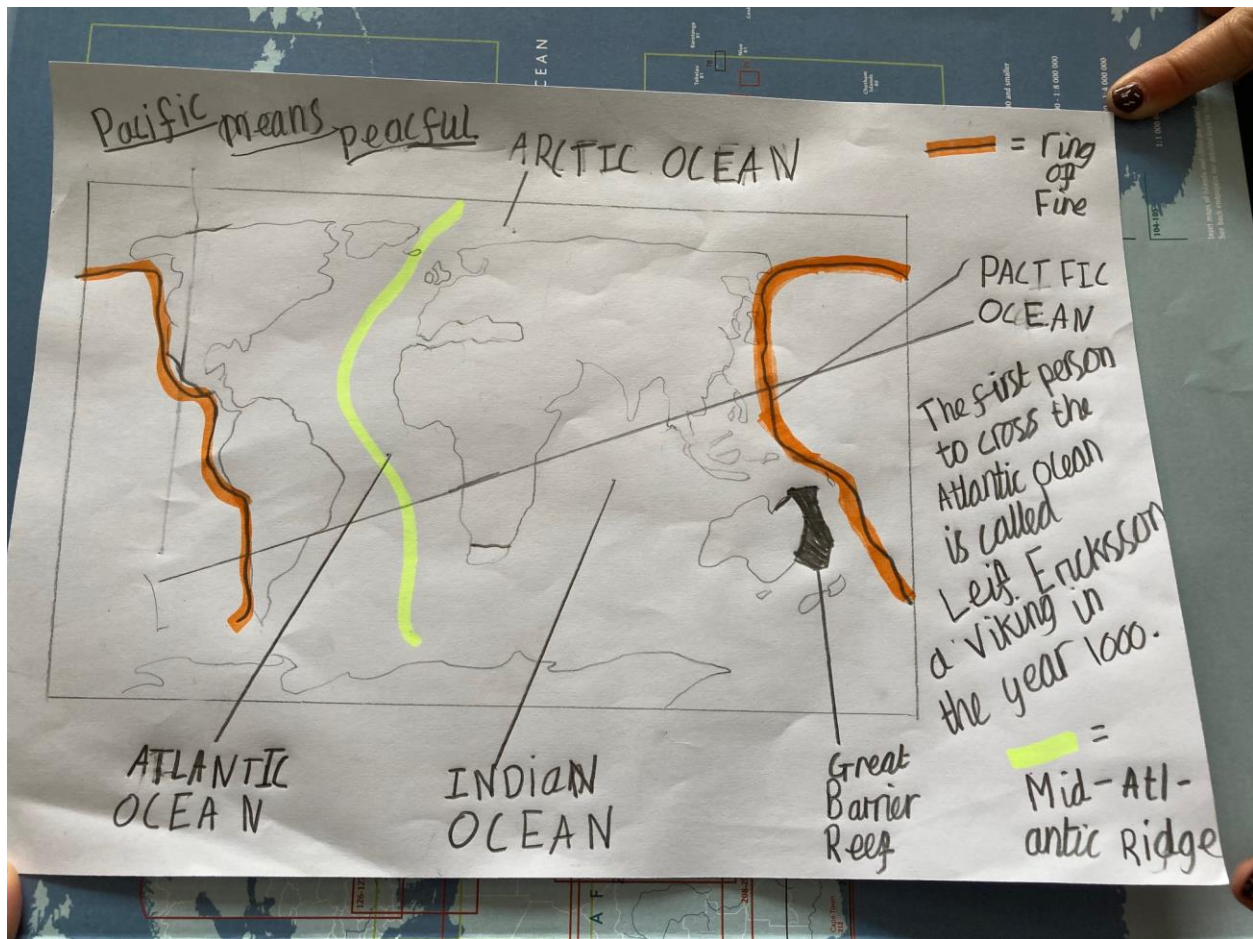 Pacific means peacful
ARCTIC OCEAN
= ring
of
Fire
PACIFIC
OCEAN
The first person
to cross the
Atlantic Ocean
is called
Leif Ericksson
a Viking in
the year 1000.
=
Mid-Atl-
antic Ridge
ATLANTIC
OCEAN
INDiaN
OCEAN
Great
Barrier
Reef
CEAN
104-105
126-12
208-2
A F